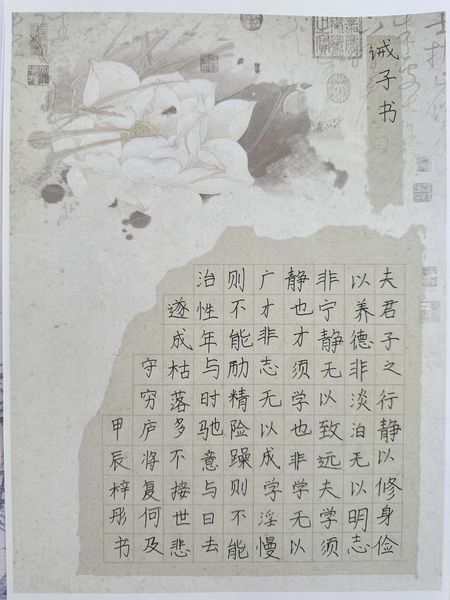 诫子书
夫君子之行静以修身俭
以养德非淡泊无以明志
非宁静无以致远夫学须
静也才须学也非学无以
广才非志无以成学淫慢
则不能励精险躁则不能
治性年与时驰意与日去
遂成枯落多不接世悲
守穷庐将复何及
甲辰梓彤书